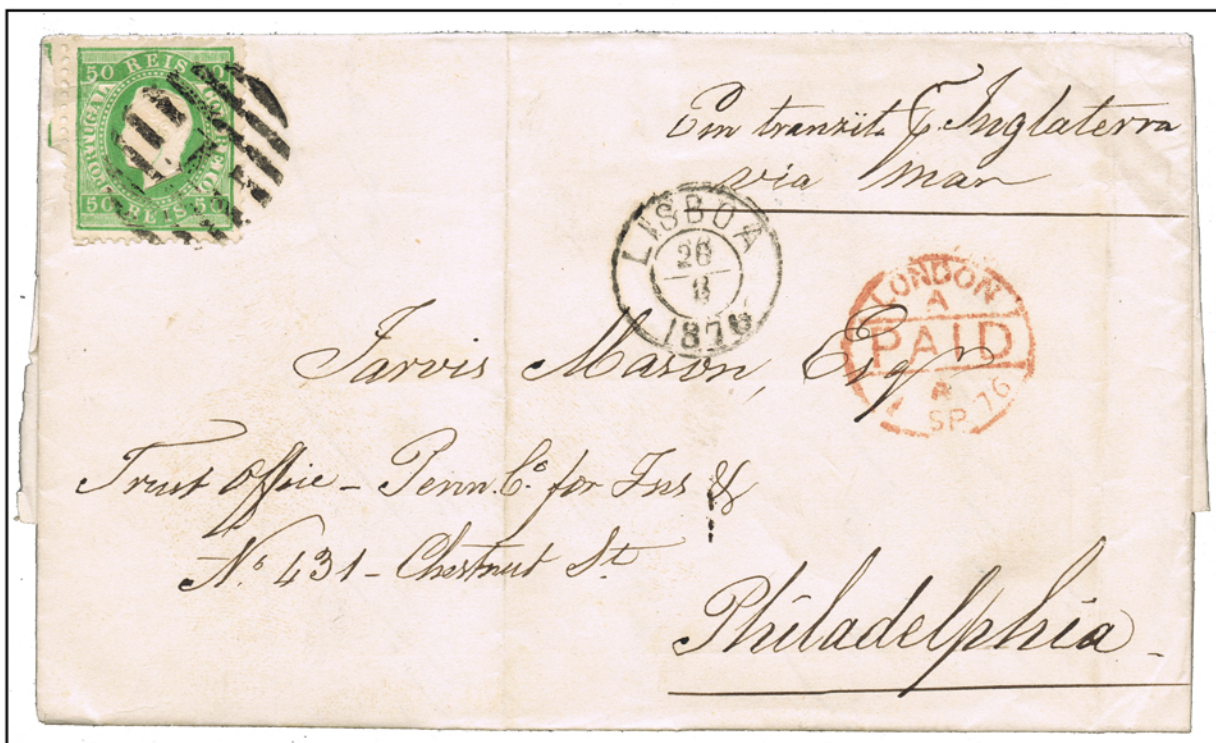 50 REIS 50
PORTUGAL
CORREIO
50 REIS 50
Em tranzit. p. Inglaterra
via mar
LISBOA
28
8
1876
LONDON
A
PAID
SP 76
Jarvis Mason, Esqr
Trust Office – Penn. Co. for Ins &
No. 431 – Chestnut St.
Philadelphia –